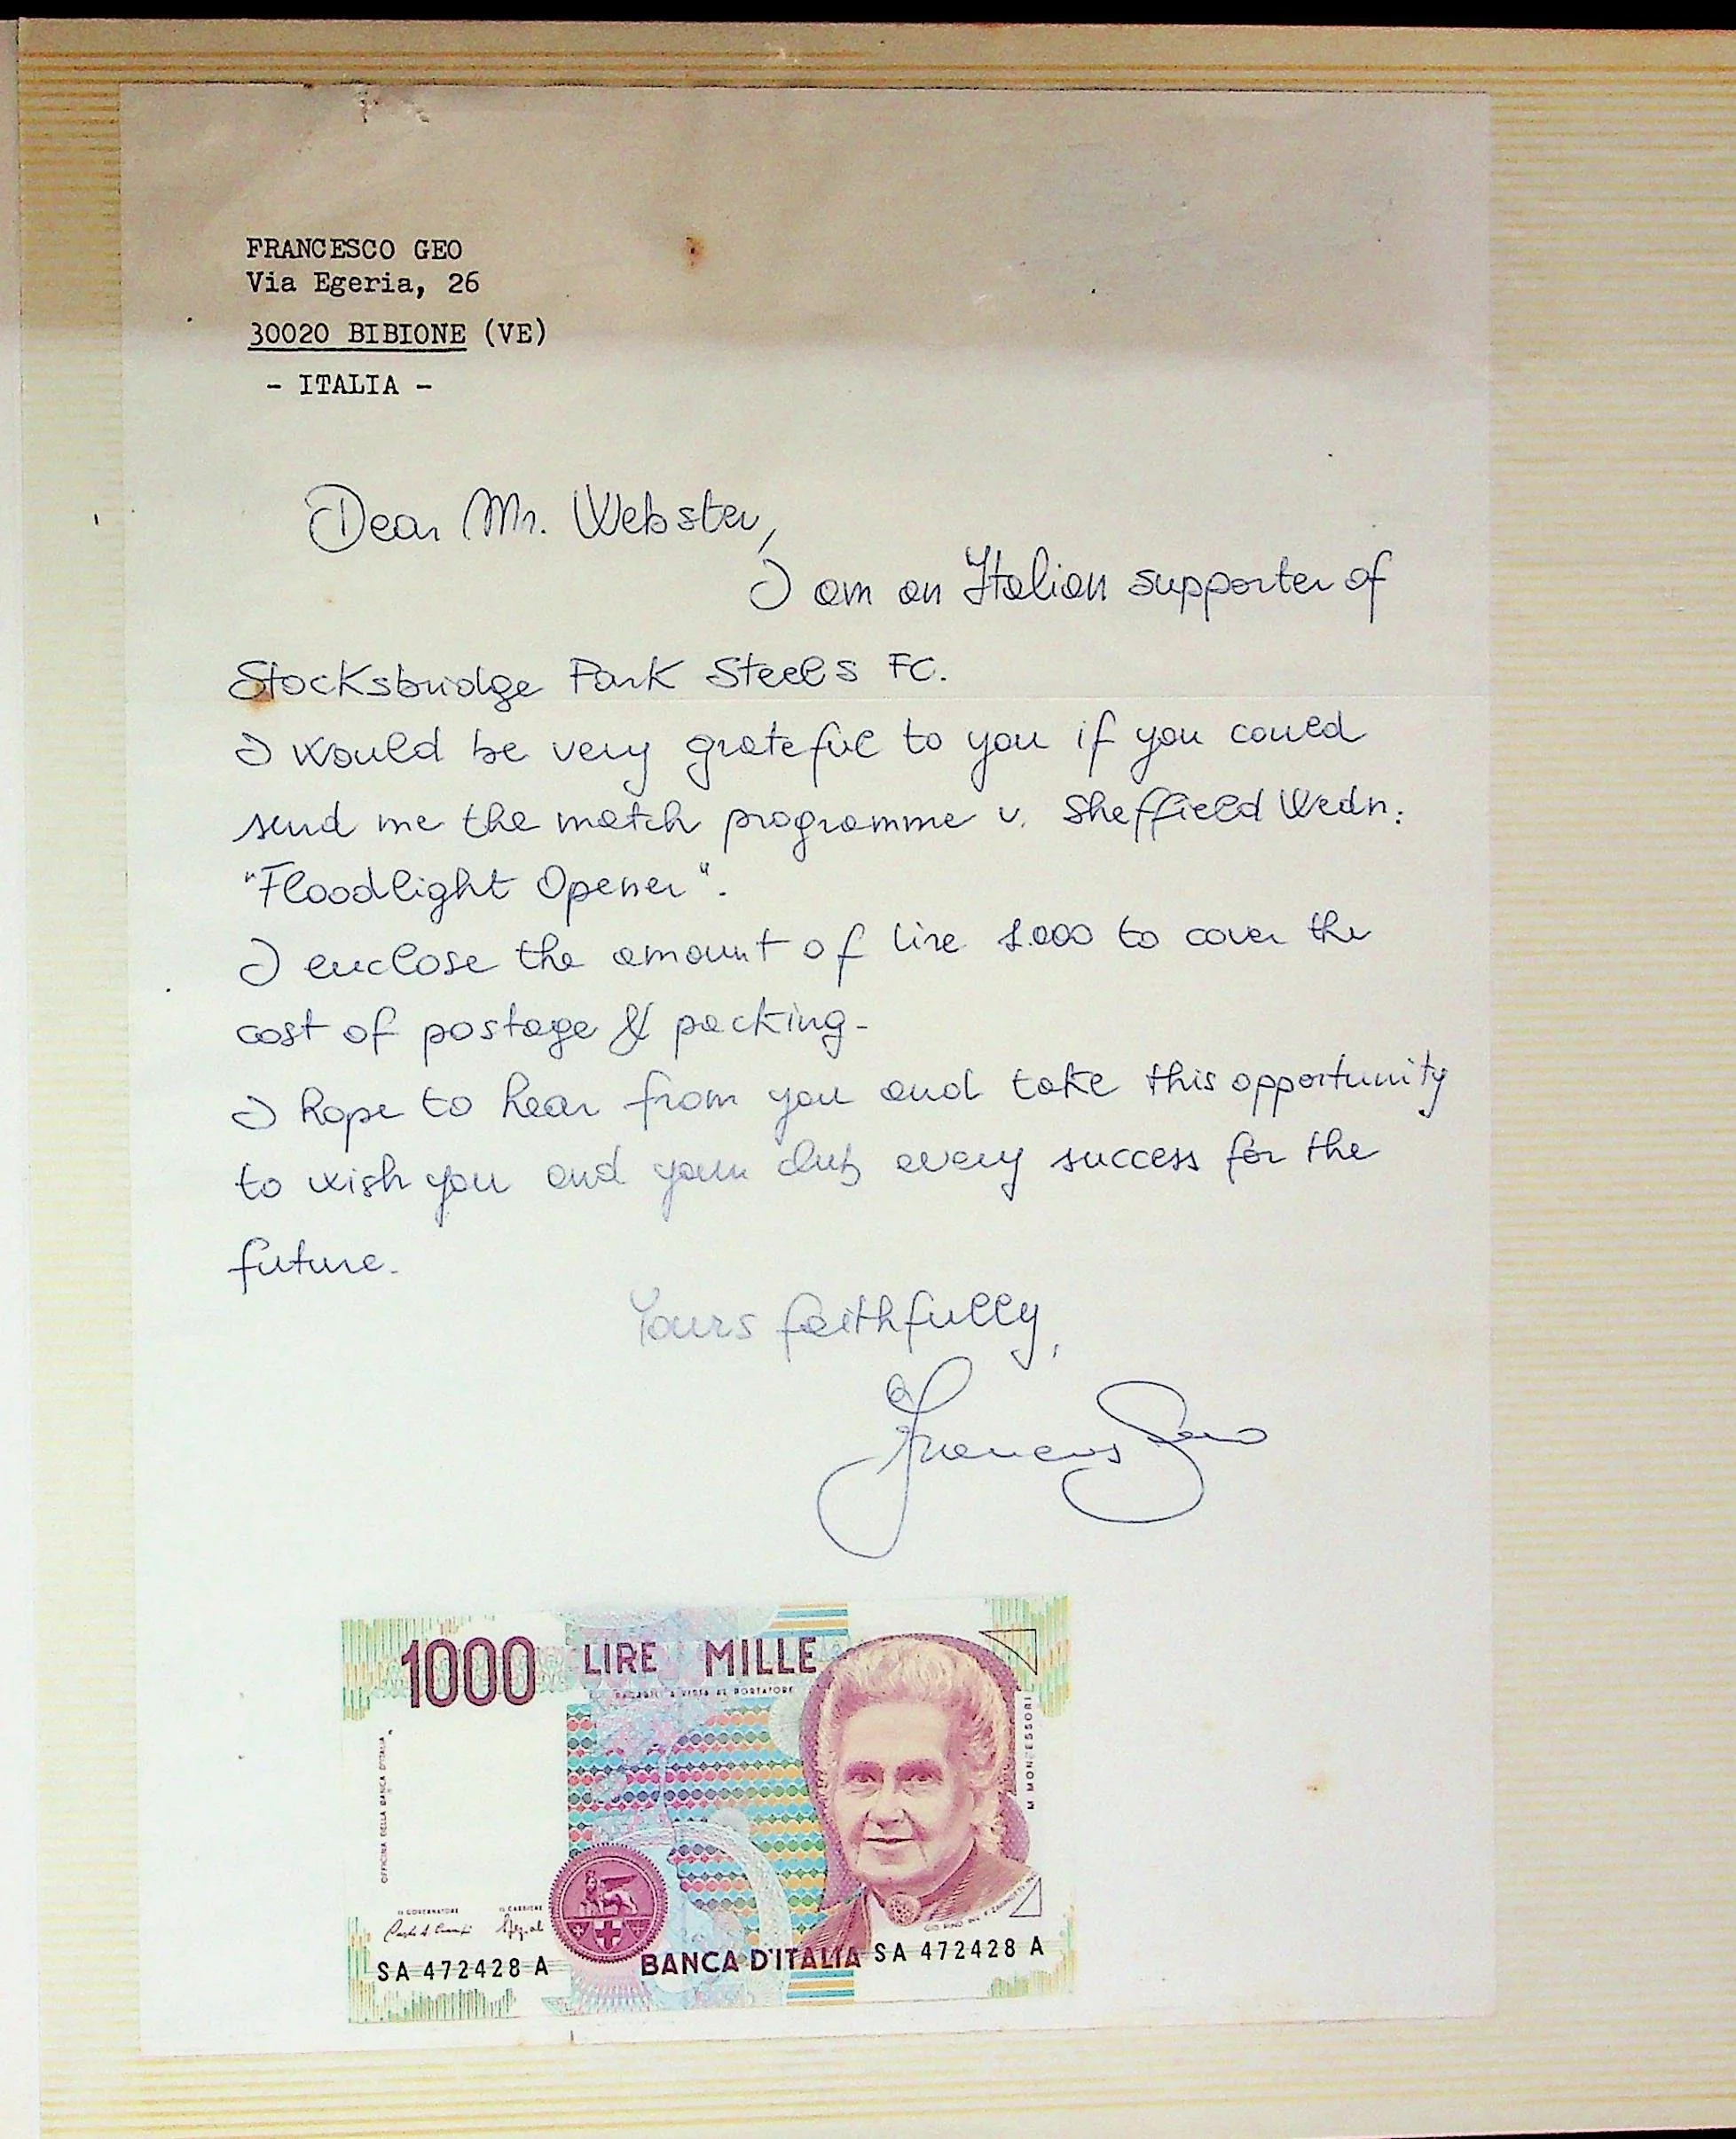 FRANCESCO GEO
Via Egeria, 26
30020 BIBIONE (VE)
- ITALIA -
Dear Mr. Webster,
I am an Italian supporter of
Stocksbridge Park Steels FC.
I would be very grateful to you if you could
send me the match programme v. Sheffield Wedn.
"Floodlight Opener".
I enclose the amount of lire 1.000 to cover the
cost of postage & packing-
I hope to hear from you and take this opportunity
to wish you and your club every success for the
future.
Yours faithfully,
Francesco Geo
1000 LIRE MILLE
PAGABILI A VISTA AL PORTATORE
M. MONTESSORI
OFFICINA DELLA BANCA D'ITALIA
IL GOVERNATORE IL CASSIERE
SA 472428 A BANCA D'ITALIA SA 472428 A